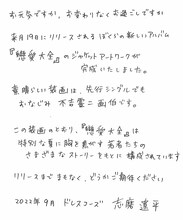 お元気ですか。お変わりなくお過ごしですか
来月19日にリリースされるぼくらの新しいアルバム
『戀愛大全』のジャケットアートワークが
完成いたしました。
素晴らしい装画は、先行シングルでも
おなじみ 不吉霊二画伯です。
この装画のとおり、『戀愛大全』は
特別な夏に胸を焦がす若者たちの
さまざまなストーリーをもとに構成されています
リリースまでまもなく、どうかご期待ください
2022年9月 ドレスコーズ 志磨遼平